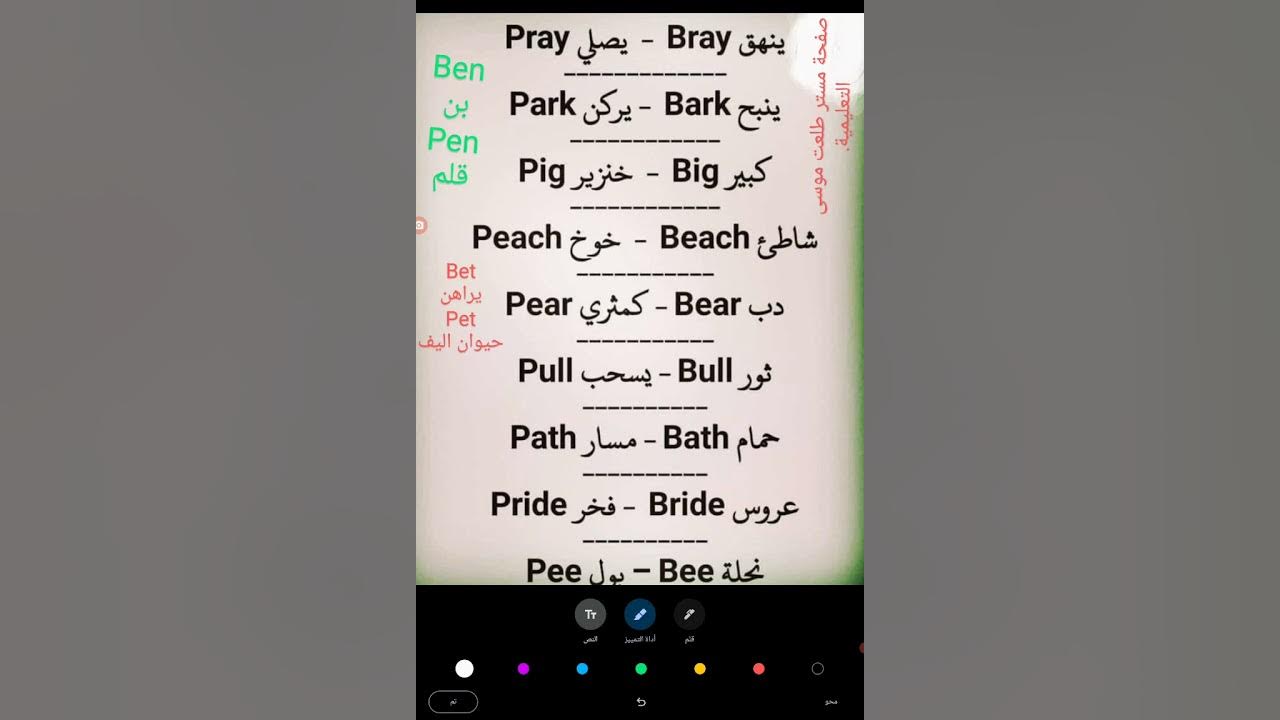 Pray يصلي - Bray ينهق
-------------
Park يركن - Bark ينبح
------------
Pig خنزير - Big كبير
------------
Peach خوخ - Beach شاطئ
-----------
Pear كمثري - Bear دب
-----------
Pull يسحب - Bull ثور
----------
Path مسار - Bath حمام
----------
Pride فخر - Bride عروس
----------
Pee بول – Bee نحلة
Ben
بن
Pen
قلم
Bet
يراهن
Pet
حيوان اليف
صفحة مستر طلعت موسى
التعليمية.
النص
أداة التمييز
قلم
تم
محو